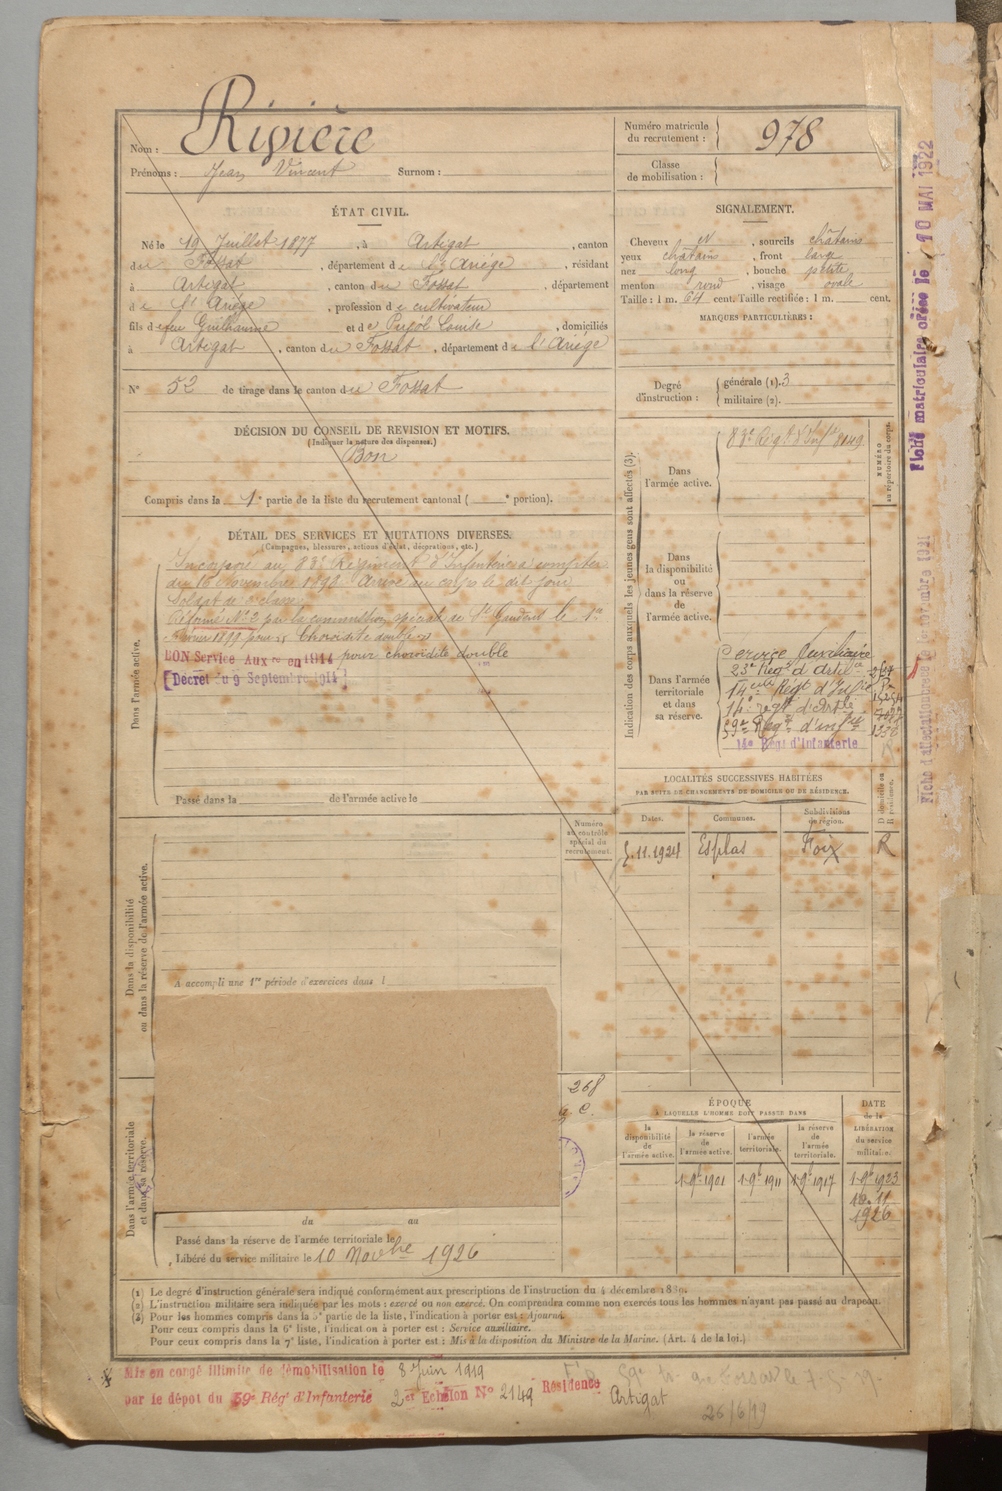 Nom : Rivière
Prénoms : Jean Vincent Surnom :
Numéro matricule du recrutement : 978
Classe de mobilisation :
ÉTAT CIVIL.
Né le 19 Juillet 1877, à Artigat, canton
du Fossat, département de l'Ariège, résidant
à Artigat, canton du Fossat, département
de l'Ariège, profession de cultivateur
fils de feu Guilhaume et de Pujol Louise, domiciliés
à Artigat, canton du Fossat, département de l'Ariège
N° 52 de tirage dans le canton du Fossat
DÉCISION DU CONSEIL DE REVISION ET MOTIFS.
(Indiquer la nature des dispenses.)
Bon
Compris dans la 1e partie de la liste du recrutement cantonal ( e portion).
DÉTAIL DES SERVICES ET MUTATIONS DIVERSES.
(Campagnes, blessures, actions d'éclat, décorations, etc.)
Dans l'armée active.
Incorporé au 83e Régiment d'Infanterie à compter
du 16 Novembre 1898 Arrivé au corps le dit jour
Soldat de 2e classe
Réformé N° 2 par la commission spéciale de St Gaudens le
1899 pour Choroïdite double
BON Service Auxre en 1914 pour choroïdite double
[Décret du 9 Septembre 1914]
Passé dans la de l'armée active le
SIGNALEMENT.
Cheveux et, sourcils châtains
yeux châtains, front large
nez long, bouche petite
menton rond, visage ovale
Taille : 1 m. 64 cent. Taille rectifiée : 1 m. cent.
MARQUES PARTICULIÈRES :
Degré d'instruction : générale (1). 3
militaire (2).
Indication des corps auxquels les jeunes gens sont affectés (3).
NUMÉRO au répertoire du corps.
Dans l'armée active.
83e Régt d'Infie
Dans la disponibilité ou dans la réserve de l'armée active.
Dans l'armée territoriale et dans sa réserve.
Service Auxiliaire
23e Régt d'Artie
14eme Régt d'Infie
14e regt d'Artie
59e Régt d'infie
14e Régt d'Infanterie
LOCALITÉS SUCCESSIVES HABITÉES
PAR SUITE DE CHANGEMENTS DE DOMICILE OU DE RÉSIDENCE.
Dates. Communes. Subdivisions de région. D domicile ou R résidence.
5.11.1924 Esplas Foix R
Numéro au contrôle spécial du recrutement.
Dans la disponibilité ou dans la réserve de l'armée active.
A accompli une 1re période d'exercices dans l
268
Dans l'armée territoriale et dans sa réserve.
du au
Passé dans la réserve de l'armée territoriale le
Libéré du service militaire le 10 Novbre 1926
ÉPOQUE
À LAQUELLE L'HOMME DOIT PASSER DANS
la disponibilité de l'armée active. la réserve de l'armée active. l'armée territoriale. la réserve de l'armée territoriale. DATE de la LIBÉRATION du service militaire.
1 9bre 1901 1 9bre 1911 1 9bre 1917 1 9bre 1923
10.11
1926
(1) Le degré d'instruction générale sera indiqué conformément aux prescriptions de l'instruction du 4 décembre 1889.
(2) L'instruction militaire sera indiquée par les mots : exercé ou non exercé. On comprendra comme non exercés tous les hommes n'ayant pas passé au drapeau.
(3) Pour les hommes compris dans la 5e partie de la liste, l'indication à porter est : Ajourné.
Pour ceux compris dans la 6e liste, l'indication à porter est : Service auxiliaire.
Pour ceux compris dans la 7e liste, l'indication à porter est : Mis à la disposition du Ministre de la Marine. (Art. 4 de la loi.)
Mis en congé illimité de démobilisation le 8 Juin 1919
par le dépôt du 59e Régt d'Infanterie 2er Echelon N° 2149 Résidence Artigat
26/6/19
Fiche matriculaire créée le 10 MAI 1922